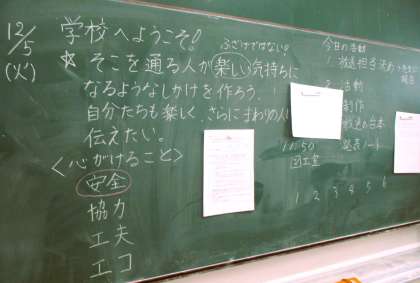 12/5
(火)
学校へようこそ!
ふざけではない。
☆そこを通る人が楽しい気持ちに
なるようなしかけを作ろう。
自分たちも楽しく、さらにまわりの人に
伝えたい。
<心がけること>
安全
協力
工夫
エコ
今日の活動
1. 放送担当決め
活動
制作
放送の台本
発表ノート
11:50
図工室
1 2 3 4 5 6